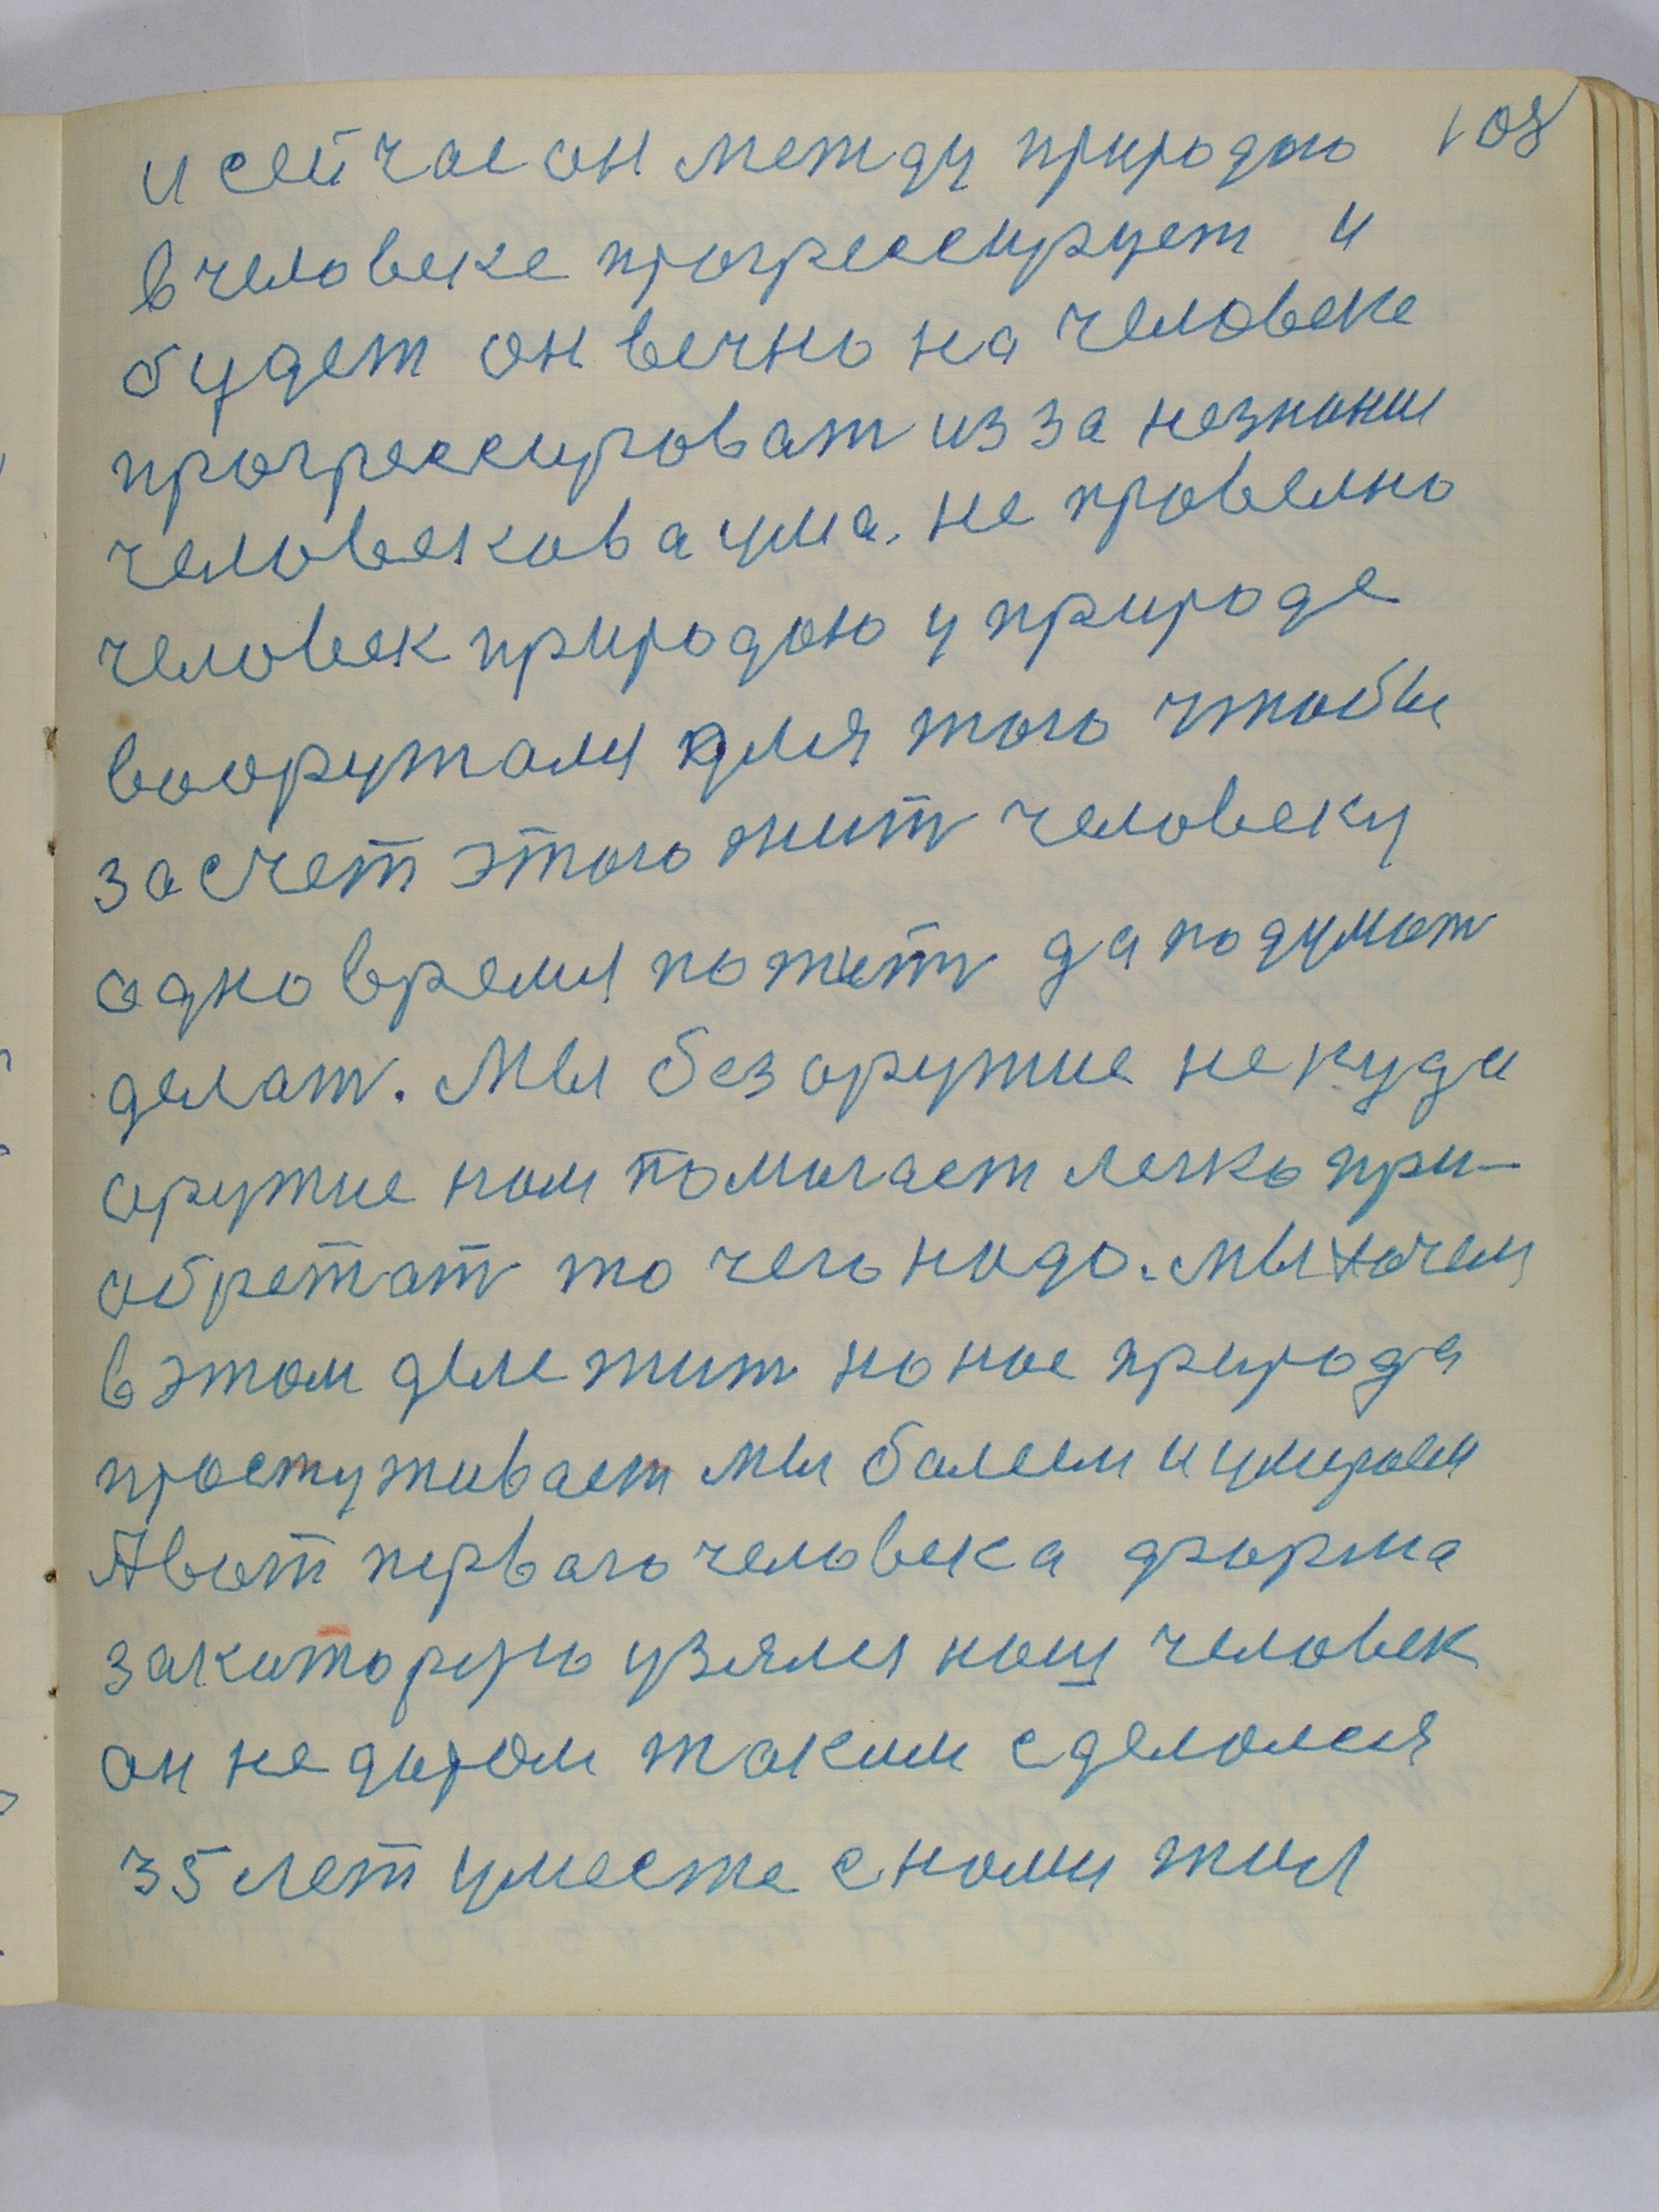 108
и сейчас он между природою
в человеке прогрессирует и
будет он вечно на человеке
прогрессироват из за незнании
человекова ума. не провелно
человек природою у природе
вооружался для того чтобы
за счет этого жит человеку
одно время пожит да подумат
делат. Мы без оружие некуда
оружие нам помагает легко при-
обретат то чего надо. мы хочем
в этом деле жит но нас природа
простуживает мы болеем и умираем
А вот первого человека форма
за которую узялся наш человек
он не даром таким сделолся
35 лет уместе с нами жил